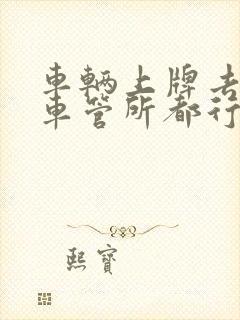 車輛上牌去
車管所都行
熙寶